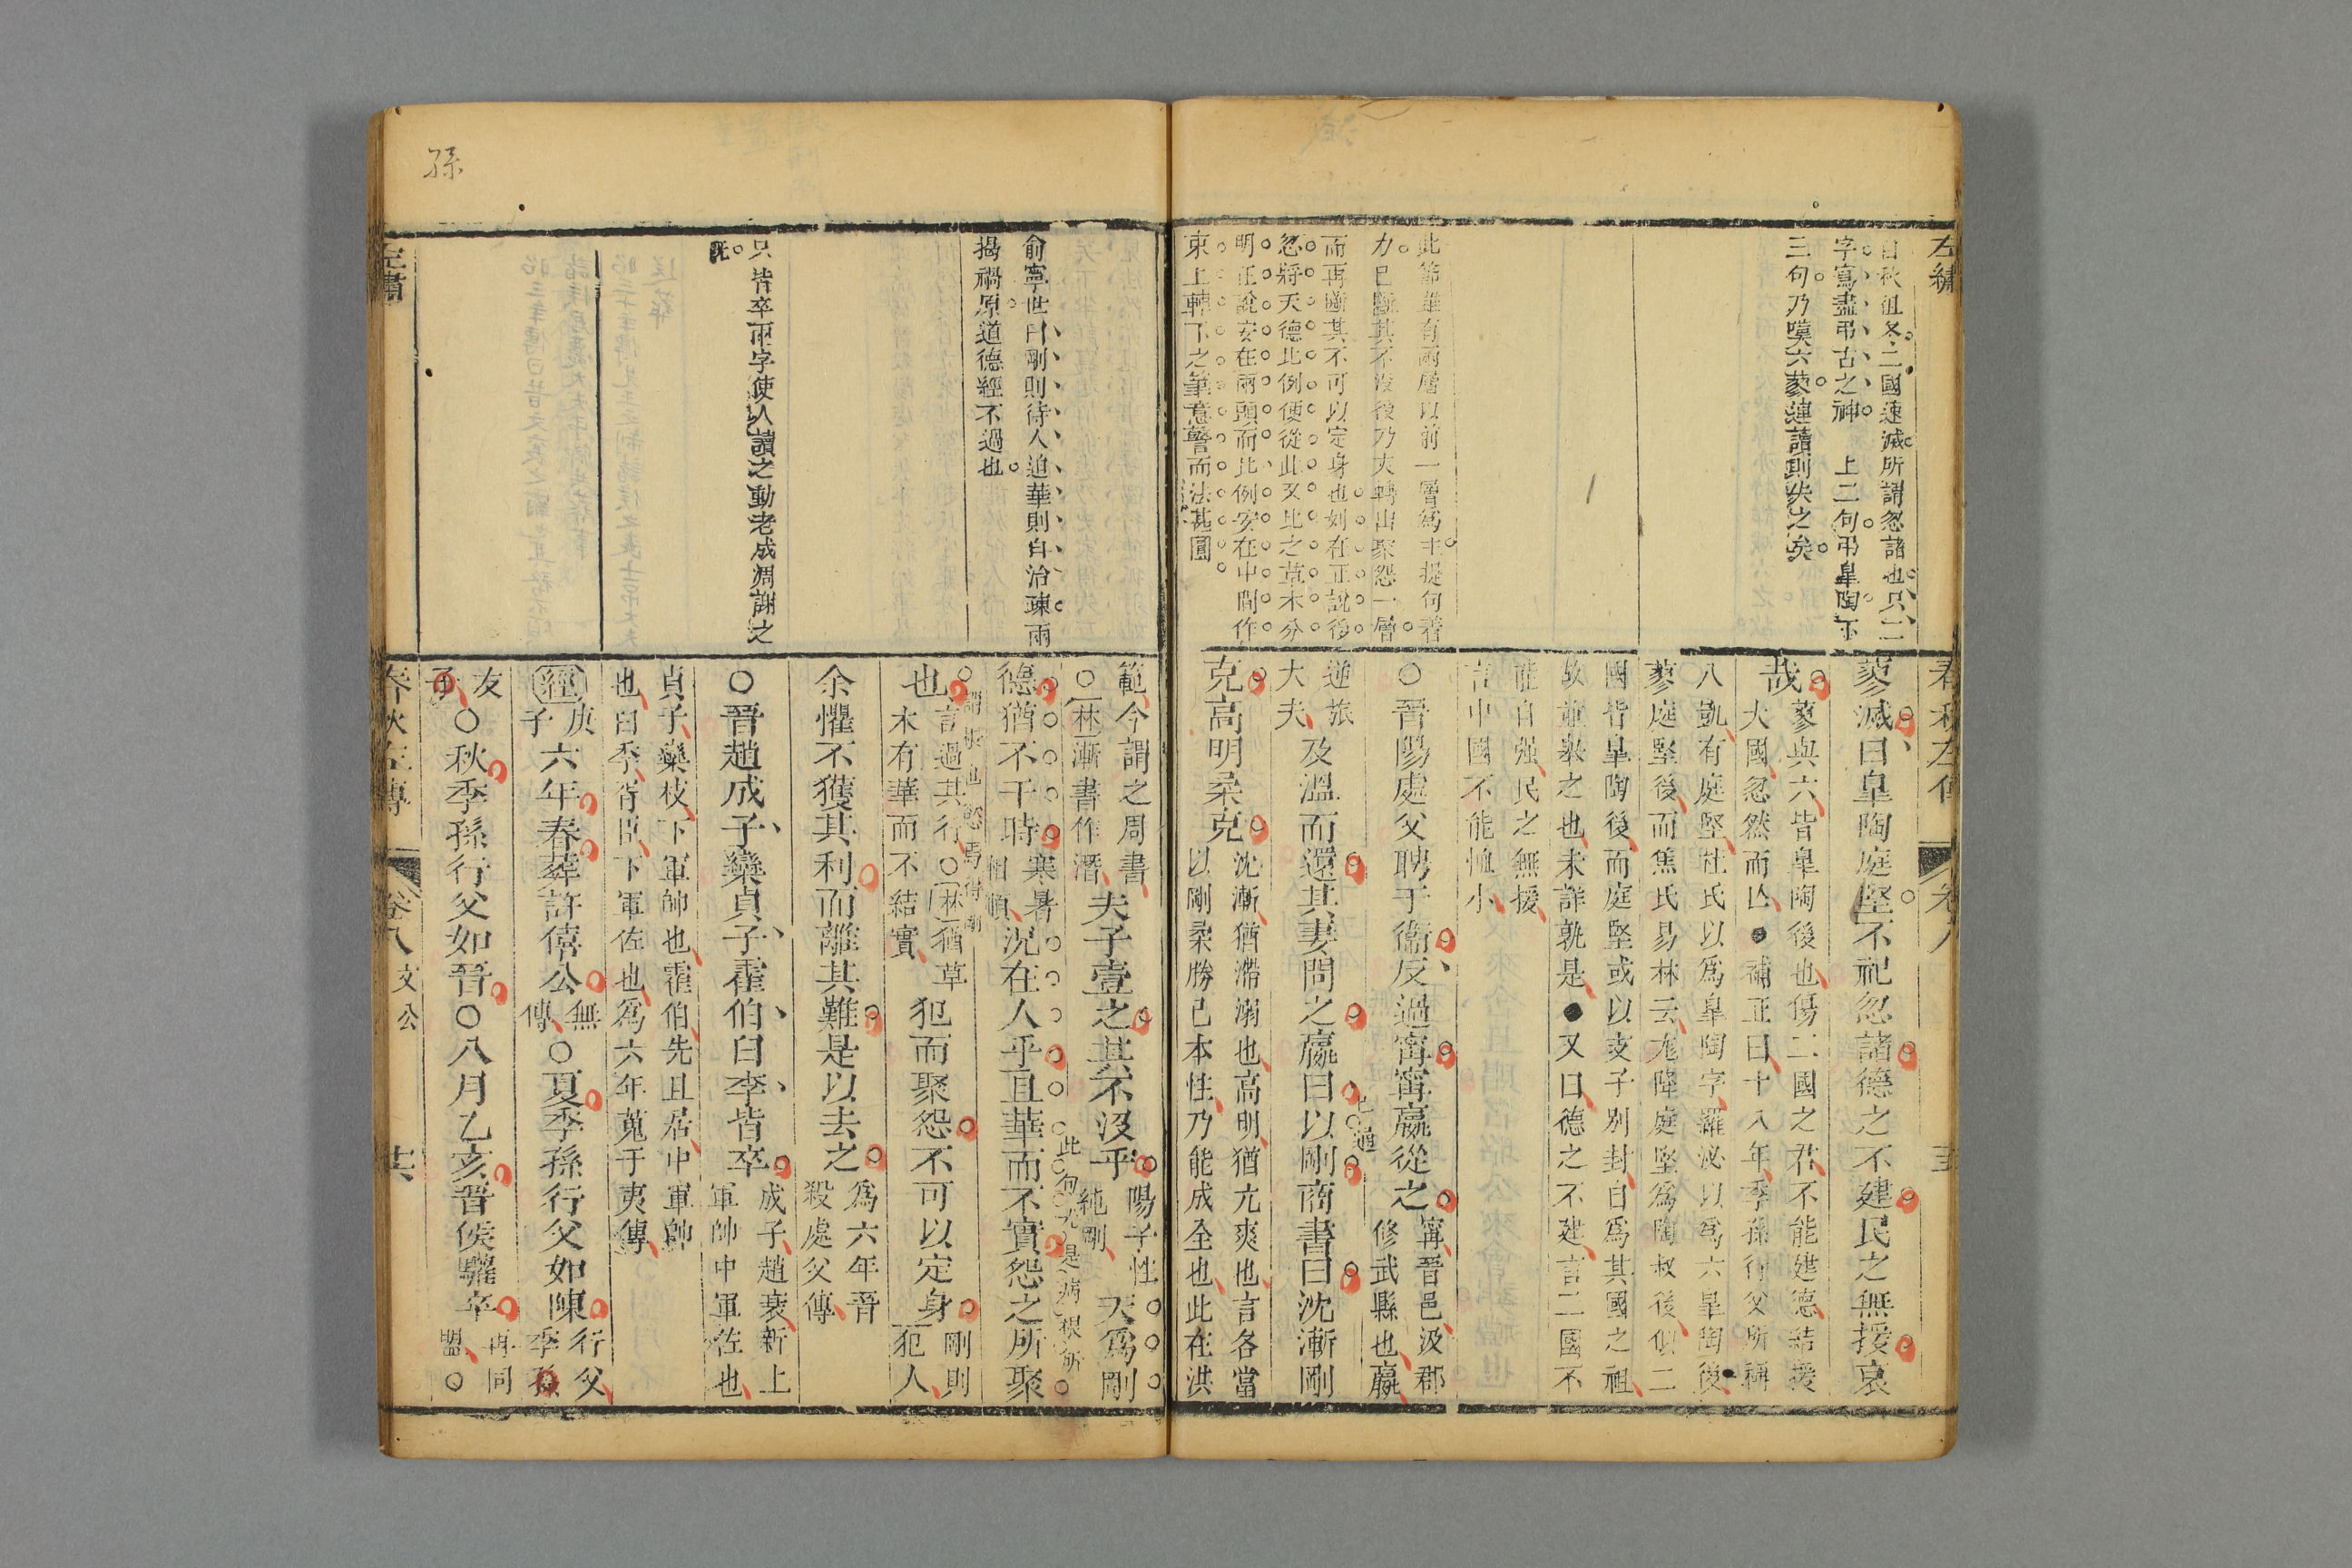 左繡
春秋左傳
卷八
字寫盡弔古之神 上二句弔臯陶下
三句乃嘆六蓼連讀則失之矣
此節雖有兩層以前一層爲主提句著
力已斷其不沒後乃夫轉出聚怨一層
而再斷其不可以定身也妙在正說後
忽將天德比例便從此又比之草木分
明正說安在兩頭而比例安在中間作
束上轉下之筆意警而法甚圓
蓼滅曰臯陶庭堅不祀忽諸德之不建民之無援哀
哉
蓼與六皆臯陶後也傷二國之君不能建德結援
大國忽然而亾●補正曰十八年季孫行父所稱
八凱有庭堅杜氏以爲臯陶字羅泌以爲六臯陶後
蓼庭堅後而焦氏易林云尨降庭堅爲陶叔後似二
國皆臯陶後而庭堅或以支子別封自爲其國之祖
故並舉之也未詳孰是●又曰德之不建言二國不
能自强民之無援
言中國不能恤小
○晉陽處父聘于衞反過甯甯嬴從之
甯晉邑汲郡
修武縣也嬴
逆旅
大夫
及溫而還其妻問之嬴曰以剛商書曰沈漸剛
克高明柔克
沈漸猶滯溺也高明猶亢爽也言各當
以剛柔勝己本性乃能成全也此在洪
俞寧世曰剛則待人迫華則自治疎兩
揭禍原道德經不過也
只皆卒兩字使人讀之動老成凋謝之
孫
範今謂之周書
○林漸書作潛
夫子壹之其不沒乎
陽子性
純剛
天爲剛
德猶不干時
寒暑
相順
況在人乎且華而不實怨之所聚
也
言過其行○林猶草
木有華而不結實
犯而聚怨不可以定身
剛則
犯人
余懼不獲其利而離其難是以去之
爲六年晉
殺處父傳
○晉趙成子欒貞子霍伯臼季皆卒
成子趙衰新上
軍帥中軍佐也
貞子欒枝下軍帥也霍伯先且居中軍帥
也臼季胥臣下軍佐也爲六年蒐于夷傳
經
庚
子
六年春葬許僖公
無
傳
○夏季孫行父如陳
行父
季孫
友
子
○秋季孫行父如晉○八月乙亥晉侯驩卒
再同
盟○
春秋左傳
卷八
文公